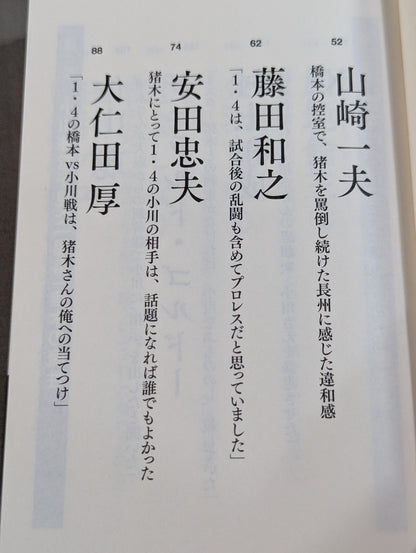 52
山崎一夫
橋本の控室で、猪木を罵倒し続けた長州に感じた違和感
62
藤田和之
「1・4は、試合後の乱闘も含めてプロレスだと思っていました」
74
安田忠夫
猪木にとって1・4の小川の相手は、話題になれば誰でもよかった
88
大仁田 厚
「1・4の橋本vs小川戦は、猪木さんの俺への当てつけ」